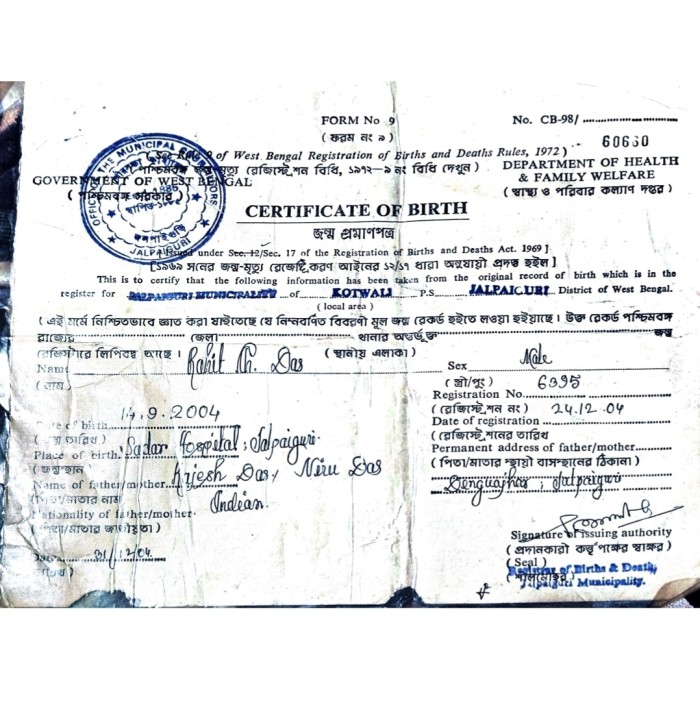 FORM No 9
( ফরম নং ৯ )
No. CB-98/
60660
( See Rule 9 of West Bengal Registration of Births and Deaths Rules, 1972 )
( পশ্চিমবঙ্গ জন্ম মৃত্যু রেজিস্ট্রেশন বিধি, ১৯৭২—৯ নং বিধি দেখুন )
GOVERNMENT OF WEST BENGAL
( পশ্চিমবঙ্গ সরকার )
DEPARTMENT OF HEALTH
& FAMILY WELFARE
( স্বাস্থ্য ও পরিবার কল্যাণ দপ্তর )
OFFICE OF THE MUNICIPAL
JALPAIGURI
CERTIFICATE OF BIRTH
জন্ম প্রমাণপত্র
Issued under Sec. 12/Sec. 17 of the Registration of Births and Deaths Act. 1969 ]
[ ১৯৬৯ সনের জন্ম-মৃত্যু রেজেষ্ট্রিকরণ আইনের ১২/১৭ ধারা অনুযায়ী প্রদত্ত হইল ]
This is to certify that the following information has been taken from the original record of birth which is in the
register for JALPAIGURI MUNICIPALITY of KOTWALI P.S. JALPAIGURI District of West Bengal.
( local area )
( এই মর্মে নিশ্চিতভাবে জ্ঞাত করা যাইতেছে যে নিম্নবর্ণিত বিবরণী মূল জন্ম রেকর্ড হইতে লওয়া হইয়াছে। উক্ত রেকর্ড পশ্চিমবঙ্গ
রাজ্যের জেলা থানার অন্তর্ভুক্ত জন্ম
রেজিস্টারে লিপিবদ্ধ আছে। ( স্থানীয় এলাকা )
Name Rohit Ch. Das
( নাম )
Sex Male
( স্ত্রী/পুং )
Registration No. 6395
( রেজিস্ট্রেশন নং ) 24.12.04
Date of birth 14.9.2004
Date of registration
( রেজিস্ট্রেশনের তারিখ
Place of birth Sadar Hospital, Jalpaiguri
( জন্মস্থান )
Permanent address of father/mother
( পিতা/মাতার স্থায়ী বাসস্থানের ঠিকানা )
Denguajhar, Jalpaiguri
Name of father/mother Das / Niru Das
( পিতা/মাতার নাম
Nationality of father/mother Indian.
( পিতা/মাতার জাতীয়তা )
Signature of issuing authority
( প্রদানকারী কর্তৃপক্ষের স্বাক্ষর )
( Seal )
Registrar of Births & Death,
Jalpaiguri Municipality.